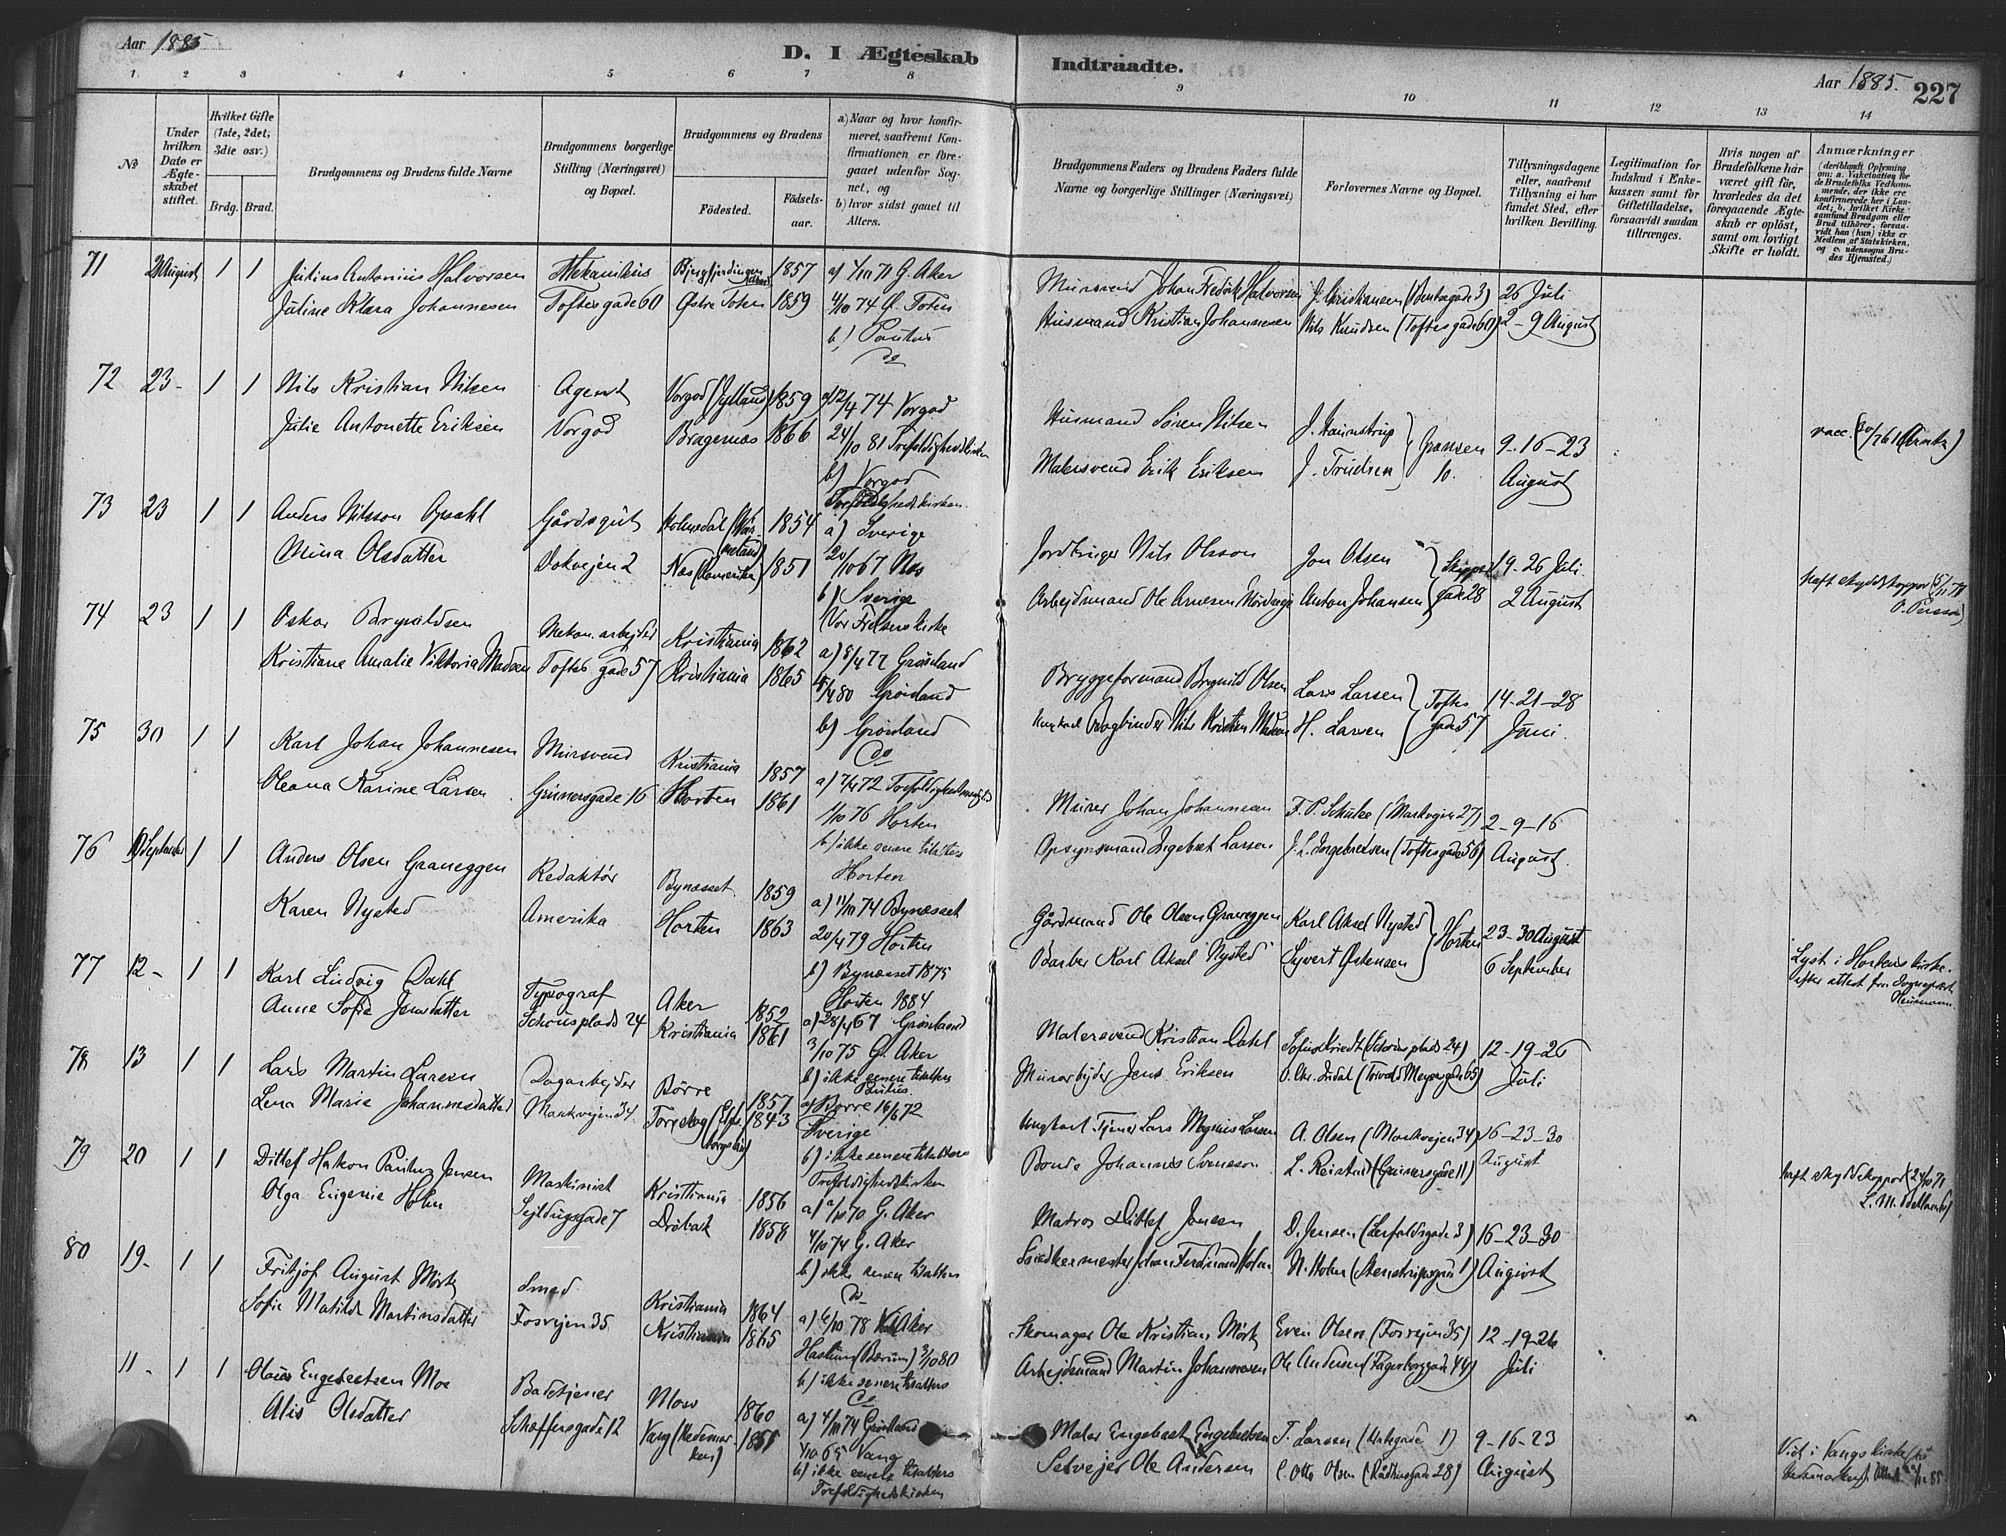 Aar 1885
D. I Ægteskab Indtraadte.
Aar 1885.
227
1. 2 3 4 5 6 7 8 9 10 11 12 13 14
No
Under hvilken Dato er Ægteskabet stiftet.
Hvilket Gifte (1ste, 2det, 3die osv.)
Brdg. Brud.
Brudgommens og Brudens fulde Navne
Brudgommens borgerlige Stilling (Næringsvei) og Bopæl.
Brudgommens og Brudens
Fødested.
Fødselsaar.
a) Naar og hvor konfirmeret, saafremt Konfirmationen er foregaaet udenfor Sognet, og
b) hvor sidst gaaet til Alters.
Brudgommens Faders og Brudens Faders fulde Navne og borgerlige Stillinger (Næringsvei)
Forlovernes Navne og Bopæl.
Tillysningsdagene eller, saafremt Tillysning ei har fundet Sted, efter hvilken Bevilling.
Legitimation for Indskud i Enkekassen samt for Giftetilladelse, forsaavidt saadan tiltrænges.
Hvis nogen af Brudefolkene har været gift før, hvorledes da det foregaaende Ægteskab er opløst, samt om lovligt Skifte er holdt.
Anmærkninger
(deriblandt Oplysning om: a. Vakcination for de Brudefolks Vedkommende, der ikke ere konfirmerede her i Landet; b. hvilket Kirkesamfund Brudgom eller Brud tilhører, forsaavidt han (hun) ikke er Medlem af Statskirken, og c. udensogns Brudes Hjemsted.)
71 2 August 1 1 Julius Antonius Halvorsen Mekanikus 1857 a) 1/10 71 G. Aker Mursvend Johan Fredrik Halvorsen J. Kristiansen 26 Juli
Juline Klara Johannesen Toftesgade 60 Østre Toten 1859 4/10 74 Ø. Toten Husmand Kristian Johannesen Nils Knudsen (Toftesgade 60) 2-9 August
b) Paulus
do
72 23- 1 1 Nils Kristian Nilsen Agent Vorgod (Jylland) 1859 a) 12/4 74 Vorgod Husmand Søren Nilsen
Julie Antonette Eriksen Vorgod Bragernæs 1866 24/10 81 Trefoldighedskirken Malersvend Erik Eriksen J. Truelsen Grænsen 10. 9-16-23 August
b) Vorgod
Trefoldighedskirken
73 23 1 1 Anders Nilsson Opsahl Gårdsgut Holmedal (Värmeland) 1854 a) Sverige Jordbruger Nils Olsson Jon Olsen Skippergade 28 19-26 Juli
Mina Olsdatter Dokvejen 2 Næs (Romerike) 1851 20/10 67 Nes Arbejdsmand Ole Arnesen Anton Johansen 2 August
b) Sverige
Vor Frelsers kirke
haft skyddskoppor
74 23 1 1 Oskar Brynildsen Mekan. arbejder Kristiania 1862 a) 8/4 77 Grønland Bryggeformand Brynild Olsen Lars Larsen Toftesgade 57 14-21-28
Kristiane Amalie Viktoria Madsen Toftesgade 57 Kristiania 1865 4/4 80 Grønland Ungkarl Bogbinder Nils Kristian Madsen H. Larsen Juni.
b) Grønland
do
75 30 1 1 Karl Johan Johannesen Mursvend Kristiania 1857 a) 7/4 72 Murer Johan Johannesen F. P. Schulze (Markvejen 27) 2-9-16
Oleana Karine Larsen Grünersgade 16 Horten 1861 1/10 76 Horten Opsynsmand Ingebret Larsen J. L. Ingebretsen (Toftesgade 56) August.
b) ikke senere til Alters
Horten
76 10 September 1 1 Anders Olsen Graneggen Redaktør Bynæsset 1859 a) 11/10 74 Bynæsset Gårdmand Ole Olsen Graneggen Karl Aksel Nysted Horten 23-30 August
Karen Nysted Amerika Horten 1863 20/4 79 Horten Barber Karl Aksel Nysted Syvert Østensen 6 September
b) Bynæsset 1875
Horten 1884
Lyst i Hortens kirke efter attest fra Sognepræst
77 12- 1 1 Karl Ludvig Dahl Typograf Aker 1852 a) 28/4 67 Grønland Malersvend Kristian Dahl 12-19-26
Anne Sofie Jensdatter Schous plads 24 Kristiania 1861 3/10 75 G. Aker Murarbejder Jens Eriksen Juli
b) ikke senere til alters
Paulus
78 13 1 1 Lars Martin Larsen Dagarbejder Børre 1857 a) Borre 16/6 72 Ungkarl Tjener Lars Magnus Larsen A. Olsen (Markvejen 34) 16-23-30
Lena Maria Johannesdatter Markvejen 34. 1843 Sverige Bonde Johannes Svensson L. Reistad (Grünersgade 11) August
b) ikke senere til alters
Trefoldighedskirken
haft skyddskoppor
79 20 1 1 Ditlef Hakon Paulus Jensen Maskinist Kristiania 1856 a) 2/10 70 G. Aker Matros Ditlef Jensen D. Jensen 16-23-30
Olga Eugenie Holm Sejldugsgade 7 Drøbak 1858 4/10 74 G. Aker Snedkermester Johan Ferdinand Holm N. Holm August
b) ikke senere til alters
do
80 19- 1 1 Fritjof August Mørk Smed Kristiania 1864 a) 6/10 78 V. Aker Skomager Ole Kristian Mørk Even Olsen (Fosvejen 35) 12-19-26
Sofie Matilde Martinsdatter Fosvejen 35 Kristiania 1865 Haslum (Bærum) 3/10 80 Arbejdsmand Martin Johannesen Ole Andersen (Fagerborggade 44) Juli
b) ikke senere til alters
do
11- 1 1 Olaus Engebretsen Moe Badetjener Moss 1860 a) 4/10 74 Grønland Maler Engebret Engebretsen T. Larsen 9-16-23
Alis Olsdatter Schæffersgade 12 Vang (Hedemarken) 1851 1/10 65 Vang Selvejer Ole Andersen C. Otto Olsen (Rådhusgade 28) August
b) ikke senere til alters
Trefoldighedskirken
Viet i Vangs kirke